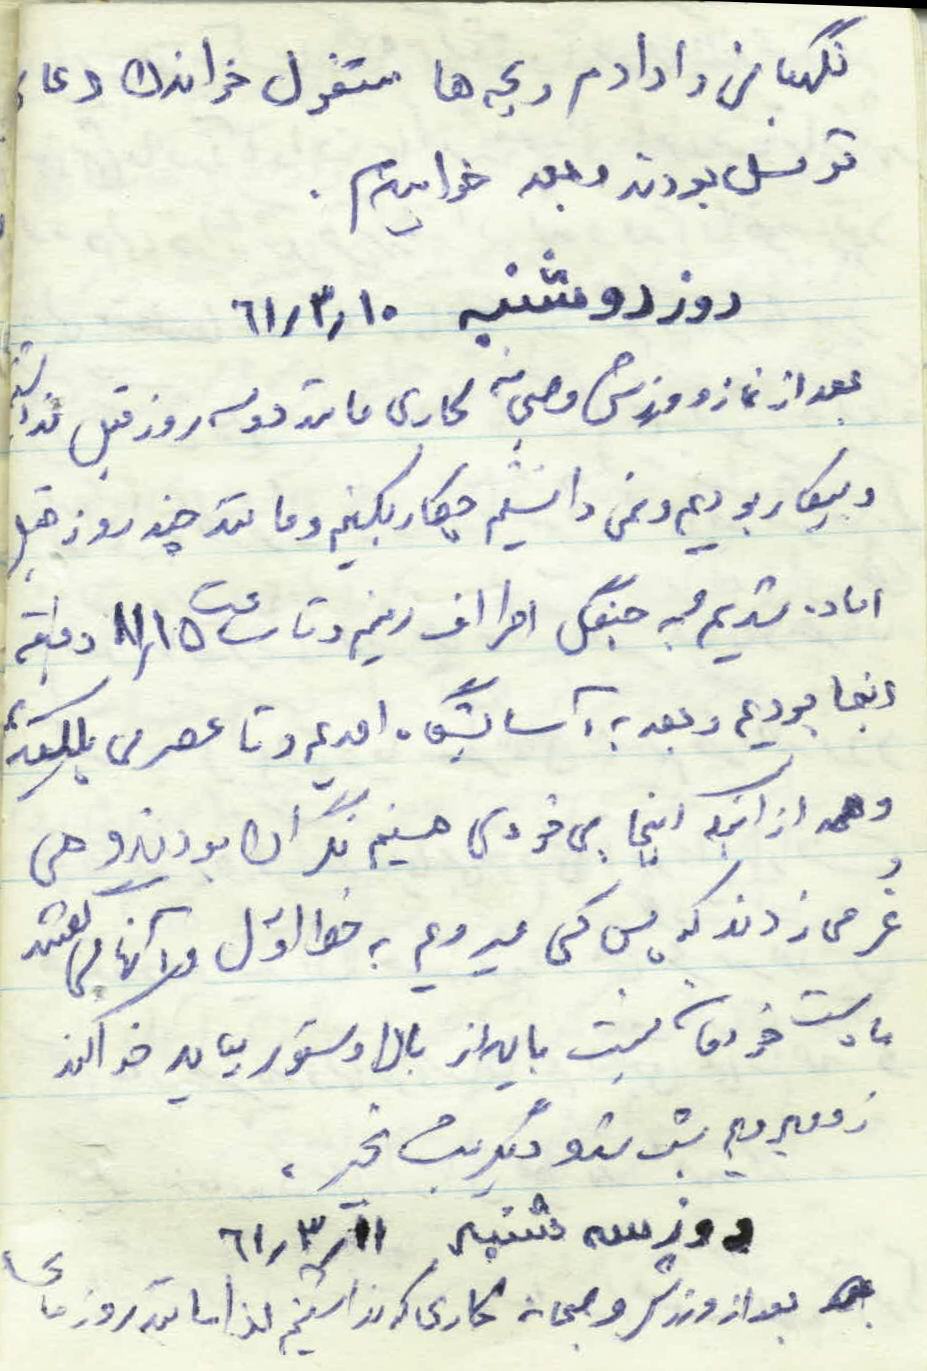 نگهبانی را دادم و بچه ها مشغول خواندن دعای
توسل بودند و بعد خوابیدیم .
روز دوشنبه ۶۱٫۳٫۱۰
بعد از نماز و ورزش و صبحانه کاری مانند دو سه روز قبل نداشتیم
و بیکار بودیم و نمی دانستیم چکار بکنیم و مانند چند روز قبل
اماده شدیم به جنگل اطراف رفتیم و تا ساعت ۱۱٫۱۵ دقیقه
انجا بودیم و بعد به آسایشگاه امدیم و تا عصر می
و همه از اینکه اینجا بی خودی هستیم نگران بودند و هی
غر می زدند که پس کی میرویم به خط اول و آنها می گفتند
ما دست خودمان نیست باید از بالا دستور بیاید خدا کند
زودتر برویم شب شد و دیگر خبر ،
روز سه شنبه ۶۱٫۳٫۱۱
بعد از ورزش و صبحانه کاری که نداشتیم لذا مانند روز های